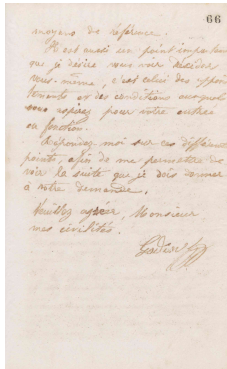 66
moyens de référence.
Il est aussi un point important
que je désire vous voir décider
vous-même, c'est celui des appoin
tements et des conditions auxquels
vous
pour votre entrée
en fonction.
Répondez moi sur ces différents
points, afin de me permettre de
voir la suite que je dois donner
à votre demande.
Veuillez agréer, Monsieur
mes civilités.